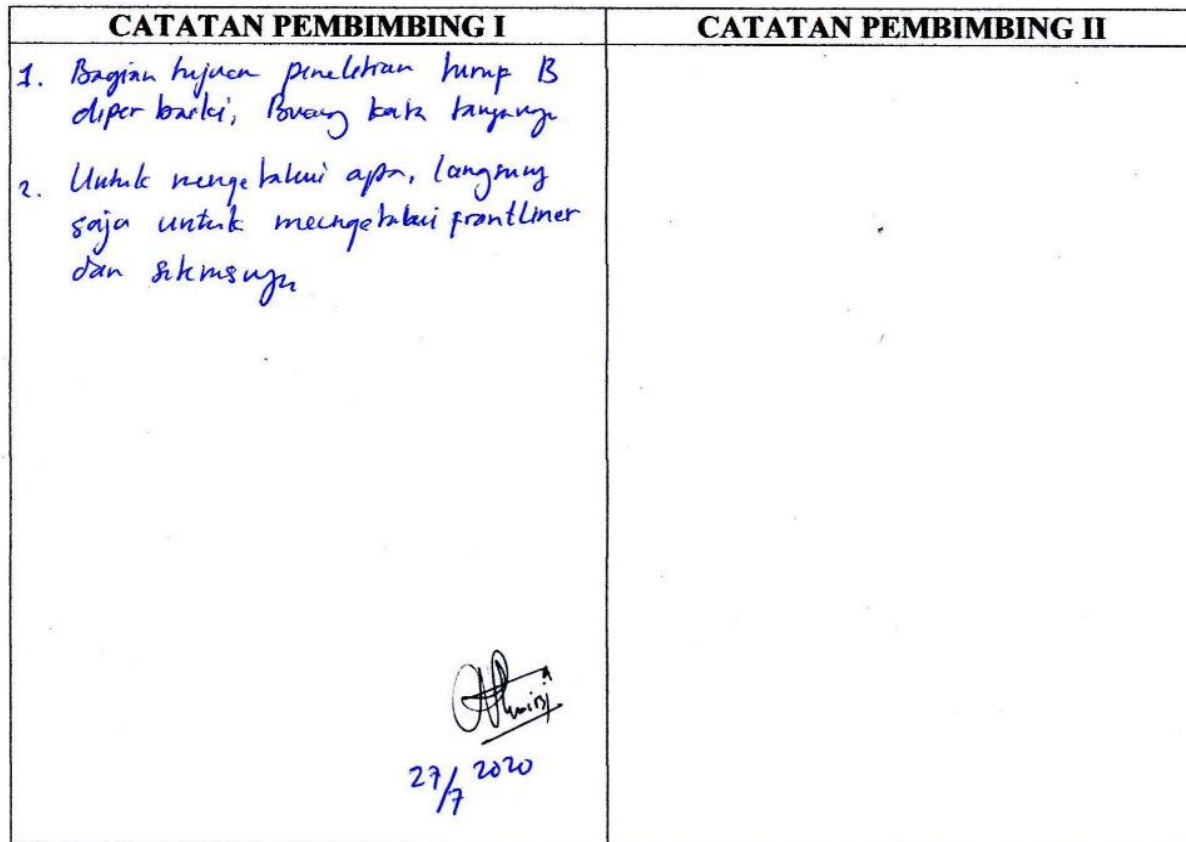 CATATAN PEMBIMBING I
CATATAN PEMBIMBING II
1. Bagian tujuan penelitian hurup B
diper baiki, Buang kata tanyanya
2. Untuk mengetahui apa, langsung
saja untuk mengetahui frontliner
dan
27/7 2020